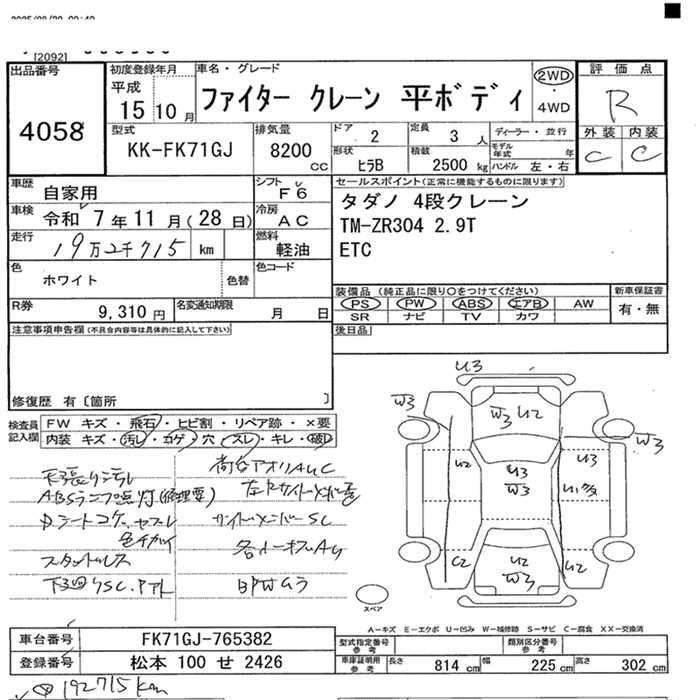 2025/08/20 09:40
[2092]
出品番号
4058
初度登録年月
平成
15 10 月
車名・グレード
ファイター クレーン 平ボディ
2WD
・
4WD
評価点
R
外装 内装
C C
型式
KK-FK71GJ
排気量
8200 CC
ドア 2
形状 ヒラB
定員 3 人
積載 2500 kg
ディーラー・並行
モデル年式 年
ハンドル 左・右
車歴 自家用
シフト F6
車検 令和 7 年 11 月 ( 28 日)
冷房 AC
走行 19万2千715 km
燃料 軽油
色 ホワイト 色替
色コード
R券 9,310 円
名変通知期限 月 日
セールスポイント(正常に機能するものに限ります)
タダノ 4段クレーン
TM-ZR304 2.9T
ETC
装備品 (純正品に限り○をつけてください)
PS PW ABS エアB AW
SR ナビ TV カワ
新車保証書
有・無
後日品
注意事項申告欄(不具合内容等は具体的に記入して下さい)
修復歴 有〔箇所 〕
検査員記入欄
FW キズ・飛石・ヒビ割・リペア跡・×要
内装 キズ・汚レ・コゲ・穴・スレ・キレ・破レ
天張り汚れ
ABSランプ点灯(修理要)
スタッドレス
荷台アオリAUC
サイドメンバーSC
U3
W3
W3 U2
W3
U2
U3
W3
U3
C2
U2
W3
U2
スペア
A−キズ E−エクボ U−凹み W−補修跡 S−サビ C−腐食 XX−交換済
車台番号 FK71GJ-765382
登録番号 松本 100 せ 2426
型式指定番号参考
類別区分番号参考
車庫証明用参考 長さ 814 cm 幅 225 cm 高さ 302 cm
192715km